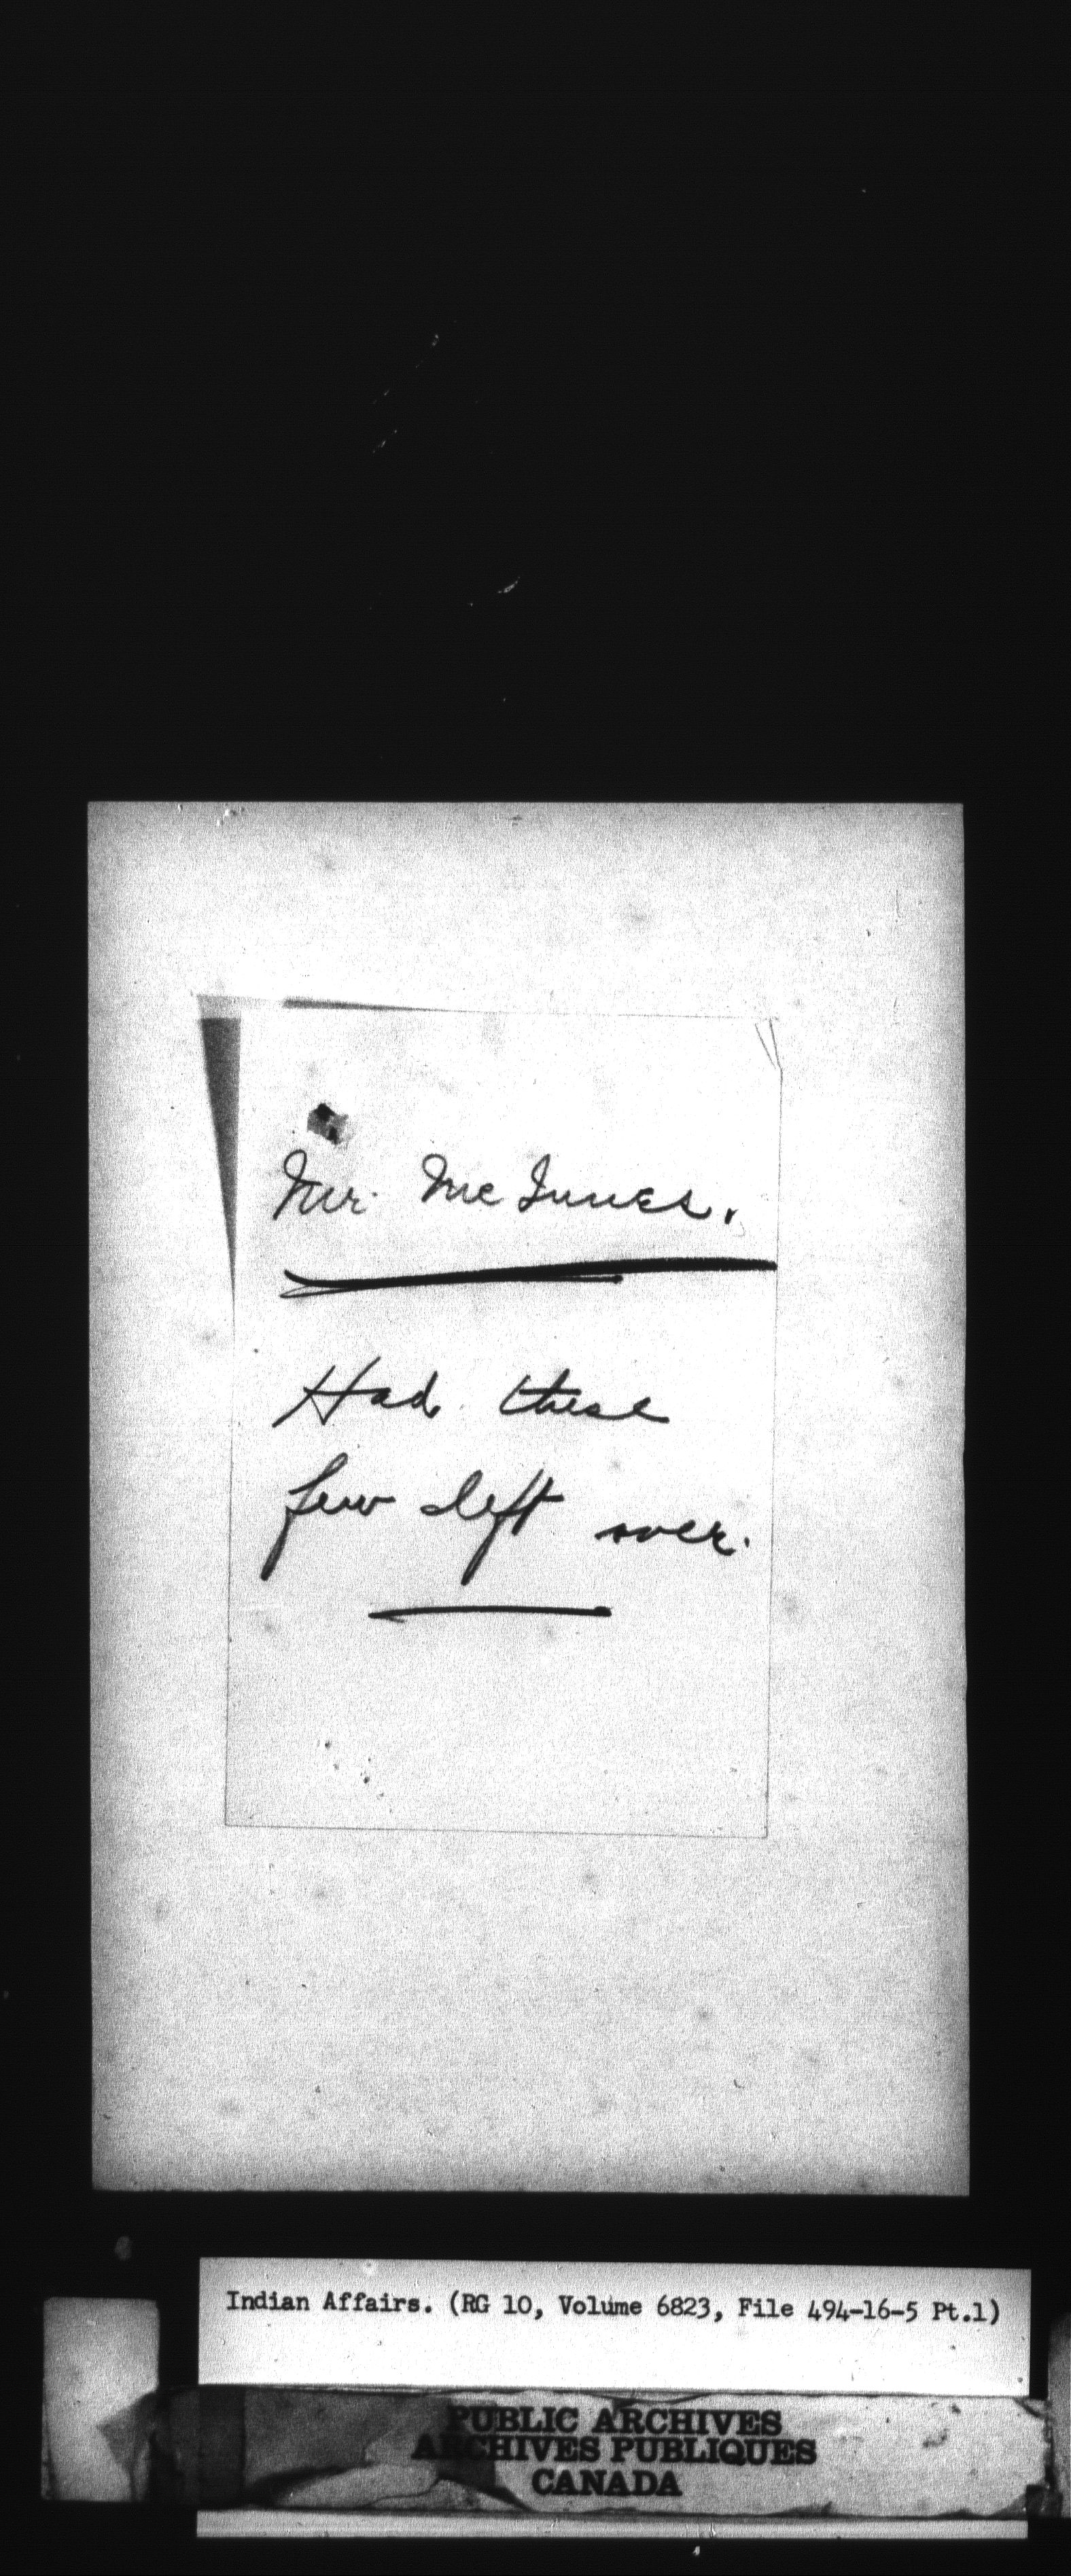 Mr. McInnes.
Had these
few left over.
Indian Affairs. (RG 10, Volume 6823, File 494-16-5 Pt.1)
PUBLIC ARCHIVES
ARCHIVES PUBLIQUES
CANADA